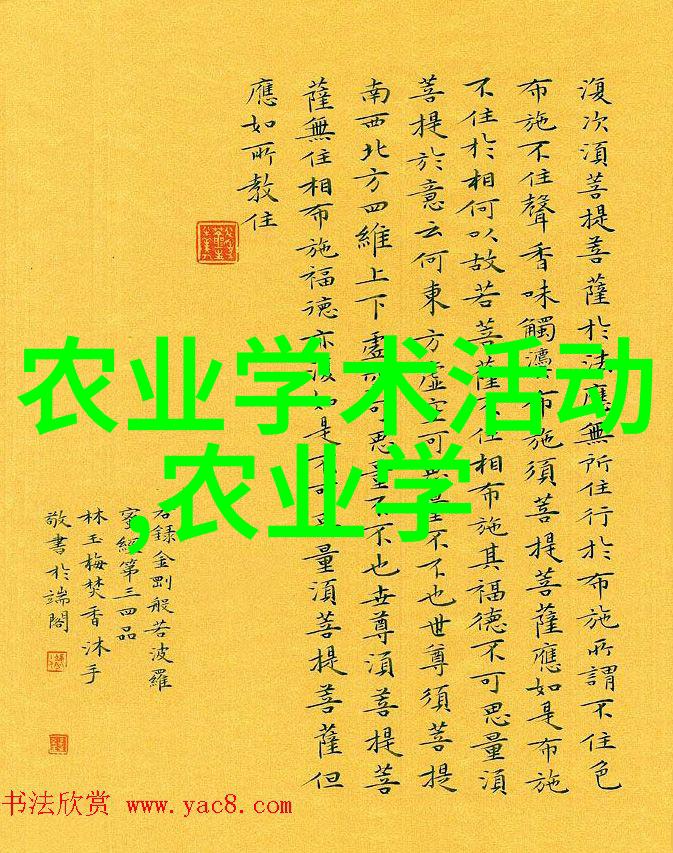 復次須菩提菩薩於法應無所住行於布施所謂不住色
布施不住聲香味觸灋布施須菩提菩薩應如是布施
不住於相何以故若菩薩不住相布施其福德不可思量須
菩提於意云何東方虛空可量不不也世尊須菩提
南西北方四維上下虛可思量不不也世尊須菩提菩
薩無住相布施福德亦復如是不可量須菩提菩薩但
應如所教住
农业学术活动
,农业学
右錄金剛般若波羅
蜜經第三四品
林玉梅焚香沐手
敬書於端閣
书法欣赏 www.yac8.com